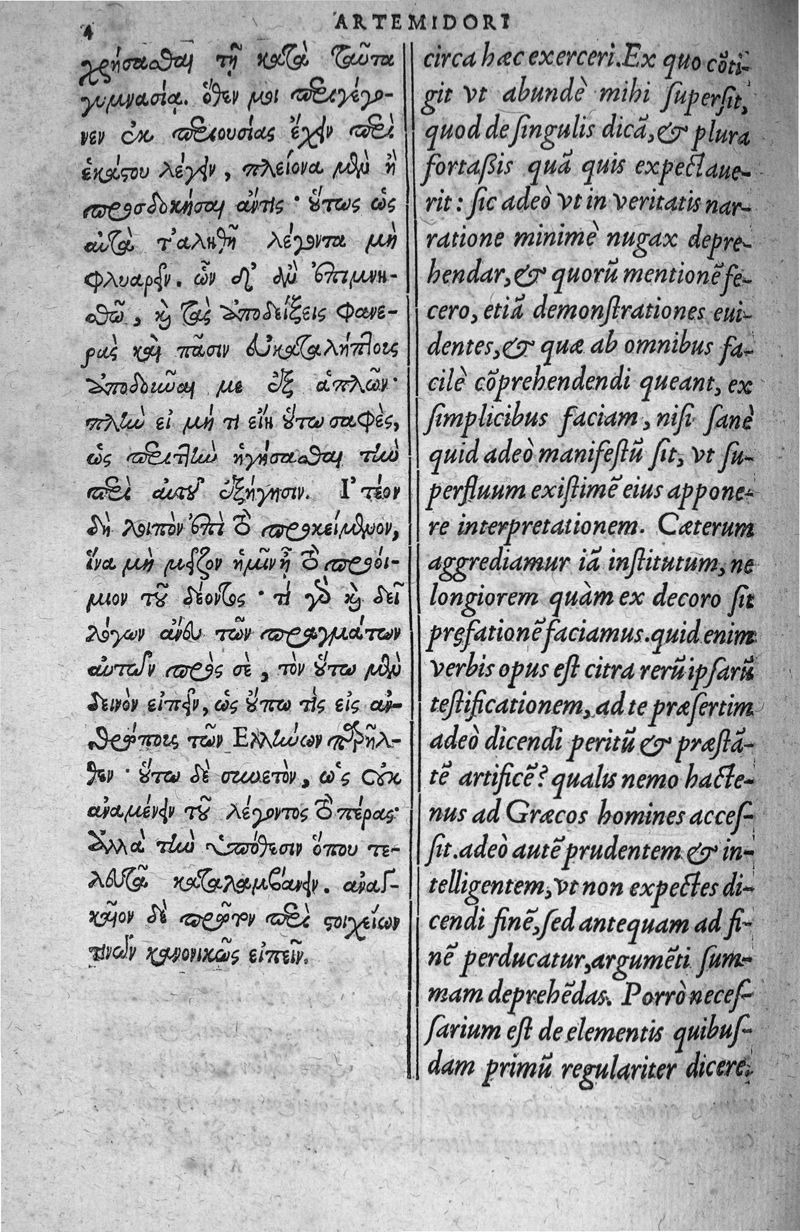 4
ARTEMIDORI
χρήσασθαι τῇ κατὰ ταῦτα
γυμνασίᾳ. ὅθεν μοι περιγέγο-
νεν ἐκ περιουσίας ἔχειν περὶ
ἑκάστου λέγειν, πλείονα μὲν ἢ
προσδοκήσαι ἄντις· οὕτως ὡς
αὐτὰ τ'αληθῆ λέγοντα μὴ
φλυαρεῖν. ὧν δ' ἂν ἐπιμνη-
σθῶ, καὶ τὰς ἀποδείξεις φανε-
ρὰς καὶ πᾶσιν εὐκαταλήπτους
ἀποδοῦναι με ἐξ ἁπλῶν·
πλὴν εἰ μή τι εἴη οὕτω σαφὲς,
ὡς περιττὴν ἡγήσασθαι τὴν
περὶ αὐτοῦ ἐξήγησιν. Ἰτέον
δὴ λοιπὸν ἐπὶ τὸ προκείμενον,
ἵνα μὴ μεῖζον ἡμῖν ᾖ τὸ προοί-
μιον τοῦ δέοντος· τί γὰρ καὶ δεῖ
λόγων ἄνευ τῶν πραγμάτων
αὐτῶν πρὸς σὲ, τὸν οὕτω μὲν
δεινὸν εἰπεῖν, ὡς οὔπω τὶς εἰς ἀν-
θρώποις τῶν Ἑλλήνων παρῆλ-
θεν· οὕτω δὲ συνετὸν, ὡς οὐκ
ἀναμένειν τοῦ λέγοντος τὸ πέρας·
ἀλλὰ τὴν ὑπόθεσιν ὅπου τε-
λευτᾷ καταλαμβάνειν. ἀναγ-
καῖον δὲ πρῶτον περὶ στοιχείων
τινῶν κανονικῶς εἰπεῖν.
circa hæc exerceri. Ex quo cõti-
git vt abundè mihi supersit,
quod de singulis dicã, & plura
fortaßis quã quis expectaue-
rit: sic adeò vt in veritatis nar-
ratione minimè nugax depre-
hendar, & quorũ mentionẽ fe-
cero, etiã demonstrationes eui-
dentes, & quæ ab omnibus fa-
cilè cõprehendendi queant, ex
simplicibus faciam, nisi sanè
quid adeò manifestũ sit, vt su-
perfluum existimẽ eius appone-
re interpretationem. Cæterum
aggrediamur iã institutum, ne
longiorem quàm ex decoro sit
prefationẽ faciamus. quid enim
verbis opus est citra rerũ ipsarũ
testificationem, ad te præsertim
adeò dicendi peritũ & præstã-
tẽ artificẽ? qualis nemo hacte-
nus ad Græcos homines acces-
sit. adeò autẽ prudentem & in-
telligentem, vt non expectes di-
cendi finẽ, sed antequam ad fi-
nẽ perducatur, argumẽti sum-
mam deprehẽdas. Porrò neces-
sarium est de elementis quibus-
dam primũ regulariter dicere,